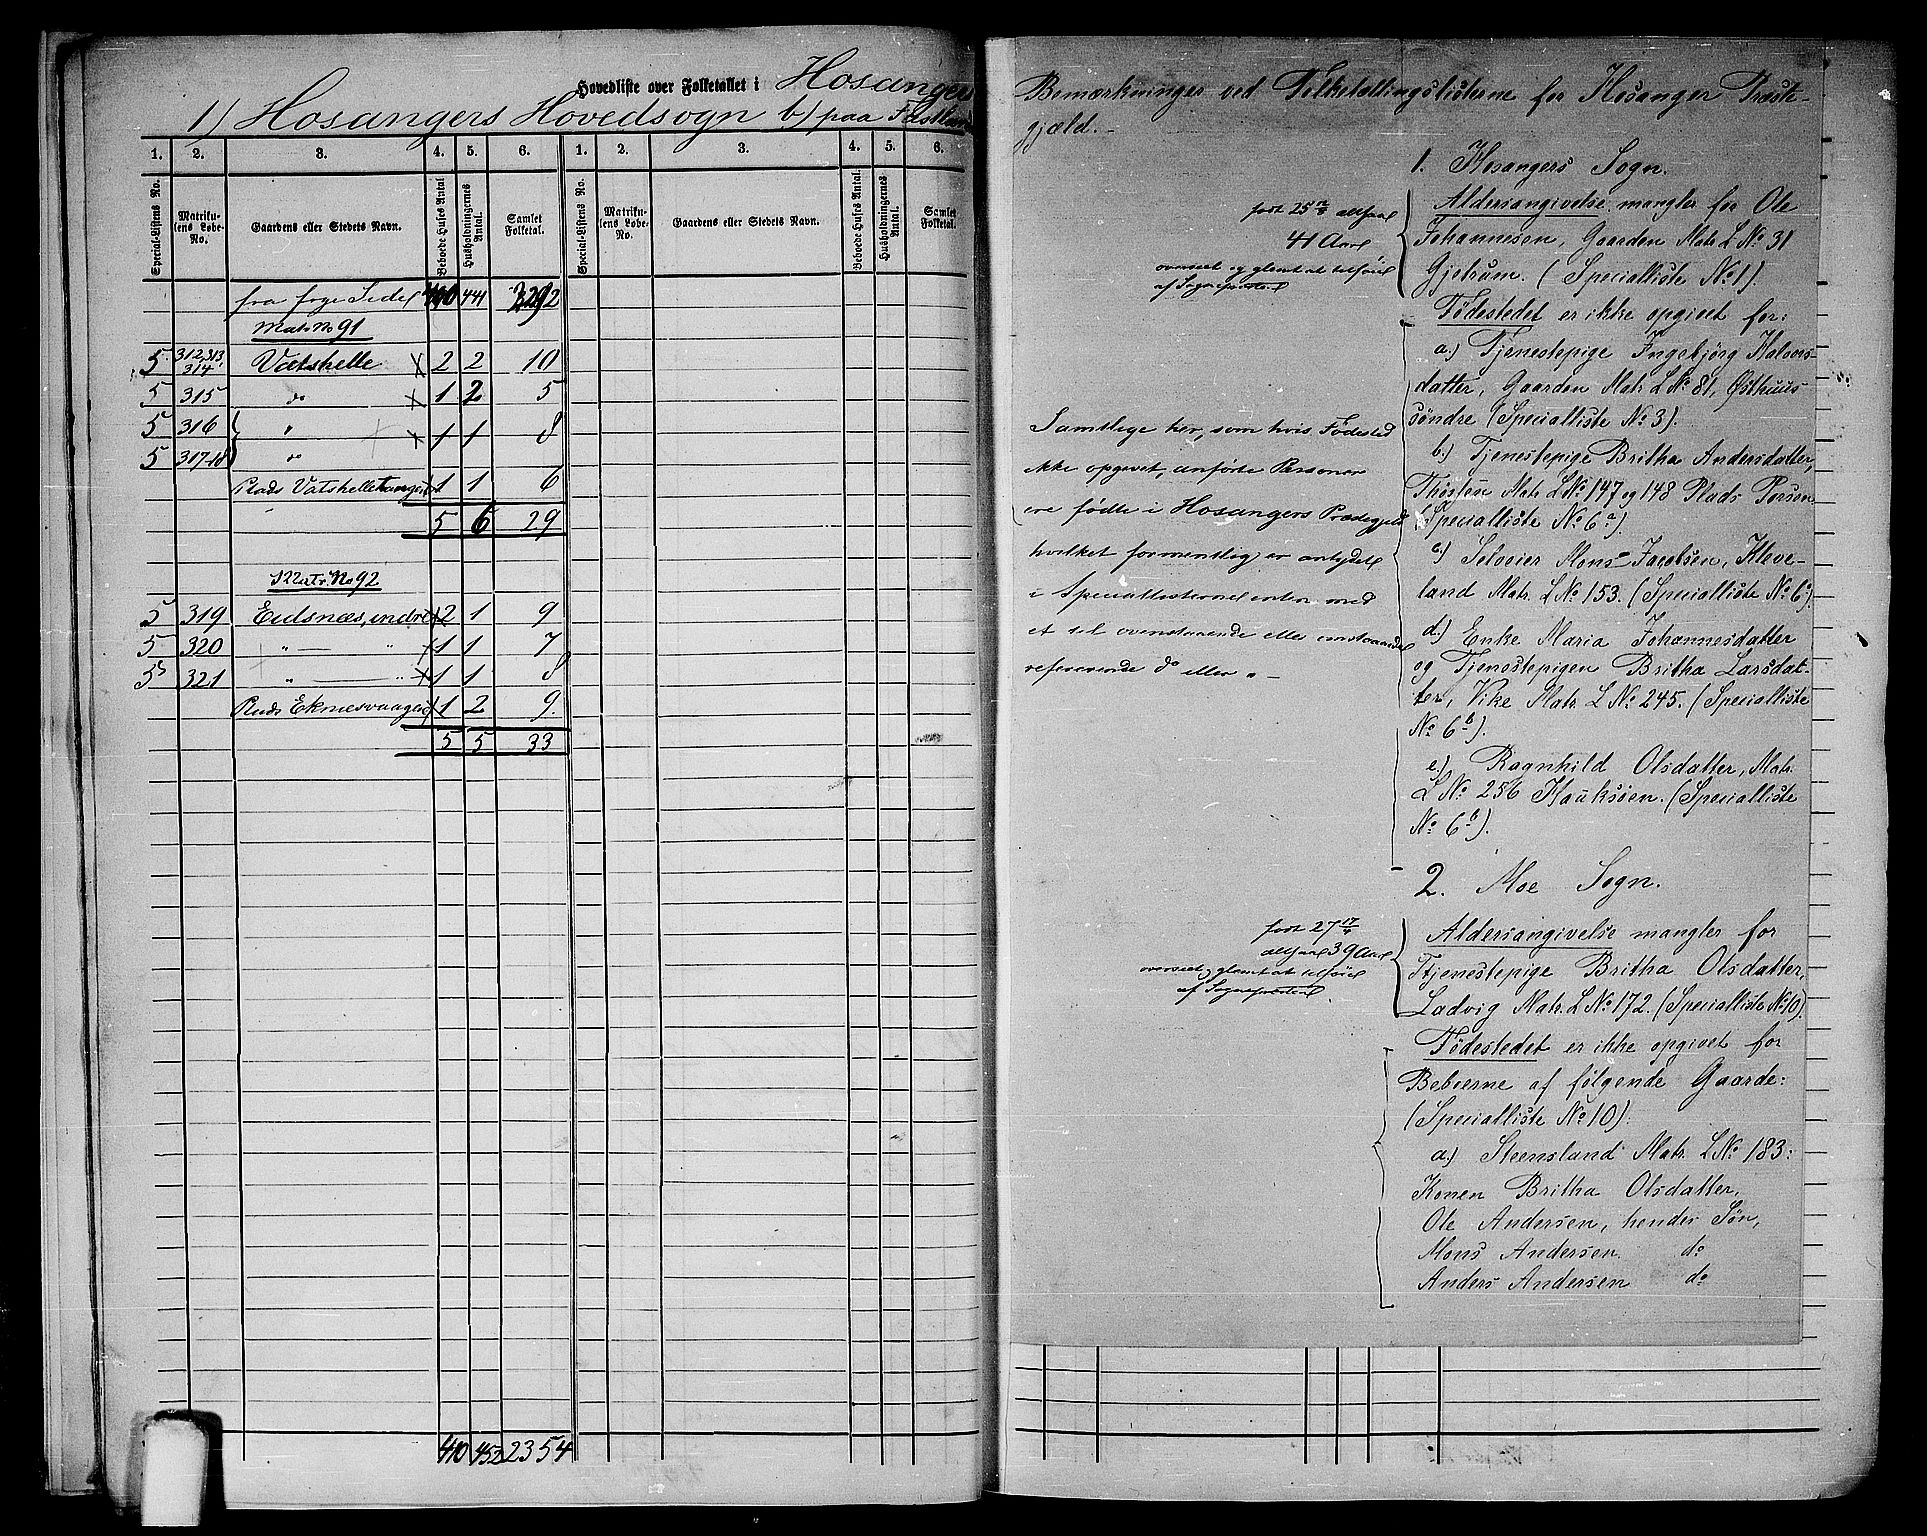 Hovedliste over Folketallet i Hosangers
1) Hosangers Hovedsogn b) paa
1. 2. 3. 4. 5. 6. 1. 2. 3. 4. 5. 6.
Special-Listens No. Matrikulens Løbe-No. Gaardens eller Stedets Navn. Beboede Huses Antal Husholdningernes Antal. Samlet Folketal. Special-Listens No. Matrikulens Løbe-No. Gaardens eller Stedets Navn. Beboede Huses Antal. Husholdningernes Antal. Samlet Folketal.
fra forge Side 400 441 2292
Matr No 91
5 312,313, 314 Vatshelle 2 2 10
5 315 do 1 2 5
5 316 " 1 1 8
5 317-18 do
Plads Vatshelletangen 1 1 6
5 6 29
Matr. No 92
5 319 Eidsnæs, indre 2 1 9
5 320 " — " 1 1 7
5 321 " — " 1 1 8
Plads Eknesvaagen 1 2 9.
5 5 33
410 452 2354
Bemærkninger ved Folketællingslisterne for Hosanger Præste-
gjæld.-
1. Hosangers Sogn.
Aldersangivelse mangler for Ole
Johannesen, Gaarden Matr L No 31
Gjetrum. (Specialliste No 1).
født 25 altsaa
41 Aar
overseet og glemt at tilføie
af Sognepresten
Fødestedet er ikke opgivet for:
a.) Tjenestepige Ingebjörg Halvors-
datter, Gaarden Matr L No 81, Østhuus
söndre (Specialliste No 3).
b.) Tjenestepige Britha Andersdatter,
Matr L No 147 og 148 Plads
(Specialliste No 6a).
c.) Selveier Mons Jacobsen, Kleve-
land Matr. L No 153. (Specialliste No 6).
d.) Enke Maria Johannesdatter
og Tjenestepigen Britha Larsdat-
ter, Vike Matr L No 245. (Specialliste
No 6b).
e.) Ragnhild Olsdatter, Matr.
L No 256 Hauksöen. (Specialliste
No 6b).
Samtlige her, som hvis Födested
ikke opgivet, anførte Personer
ere fødte i Hosangers Prædegjeld
hvilket formentlig er antydet
i Speciallisterne enten med
et til ovenstaaende eller
refererende do eller " -
2. Moe Sogn.
Aldersangivelse mangler for
Tjenestepige Britha Olsdatter,
Ladvig Matr. L No 172. (Specialliste No 10).
født 27 17
altsaa 39 Aar
overseet, glemt at tilföie
af Sognepresten
Fødestedet er ikke opgivet for
Beboerne af følgende Gaarde:
(Specialliste No 10).
a.) Steensland Matr. L No 183:
Konen Britha Olsdatter,
Ole Andersen, hendes Søn,
Mons Andersen do
Anders Andersen do